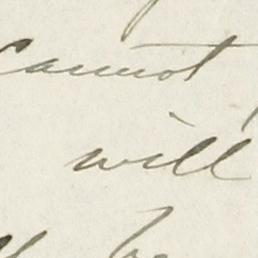 cannot
will
be